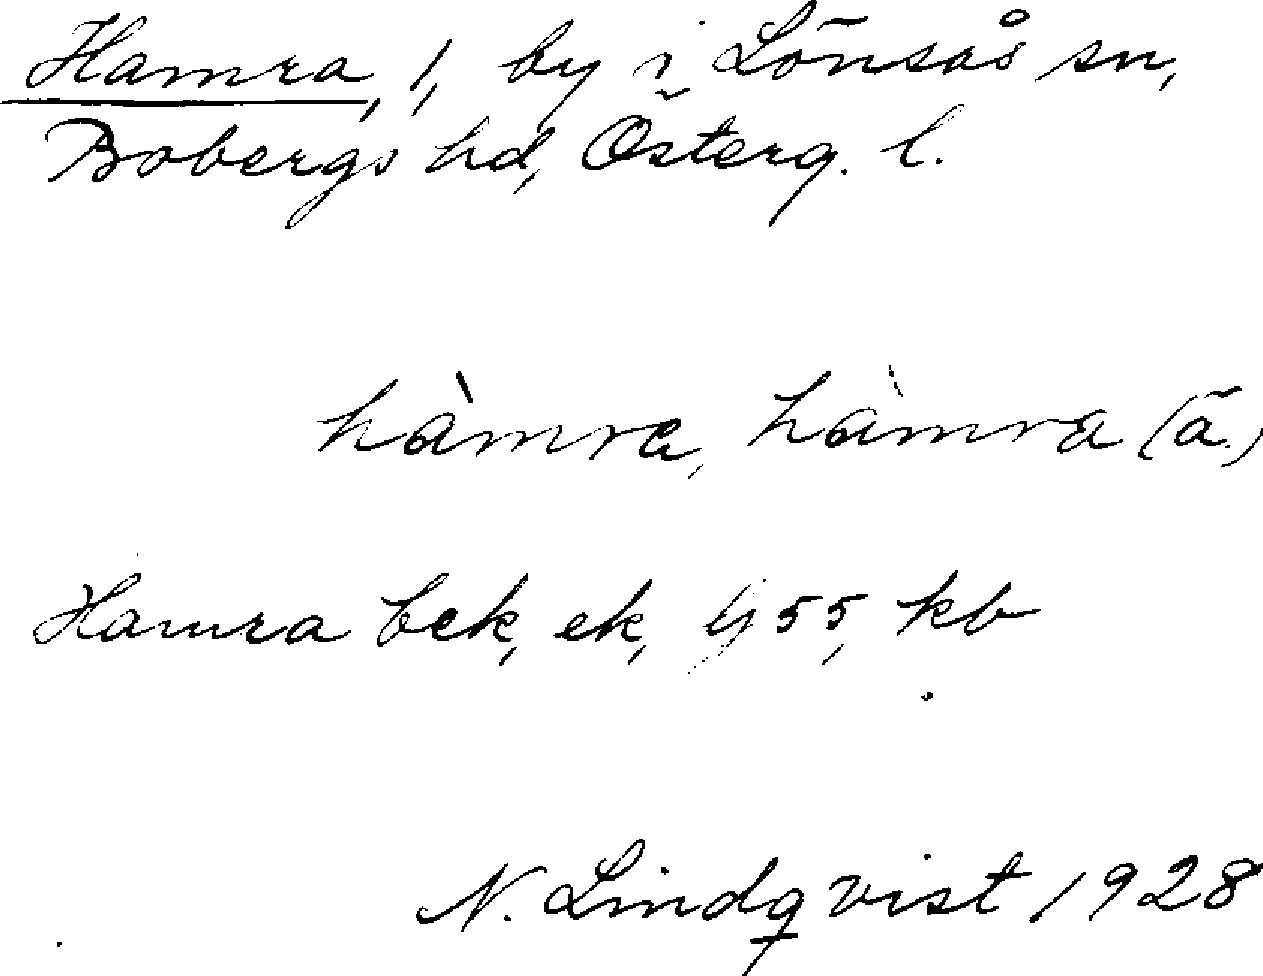 Hamra, 1, by i Lönsås sn,
Bobergs hd, Österg. l.
hàmra, hàmra (ä.)
Hamra bek, ek, gj 55, kb
N. Lindqvist 1928